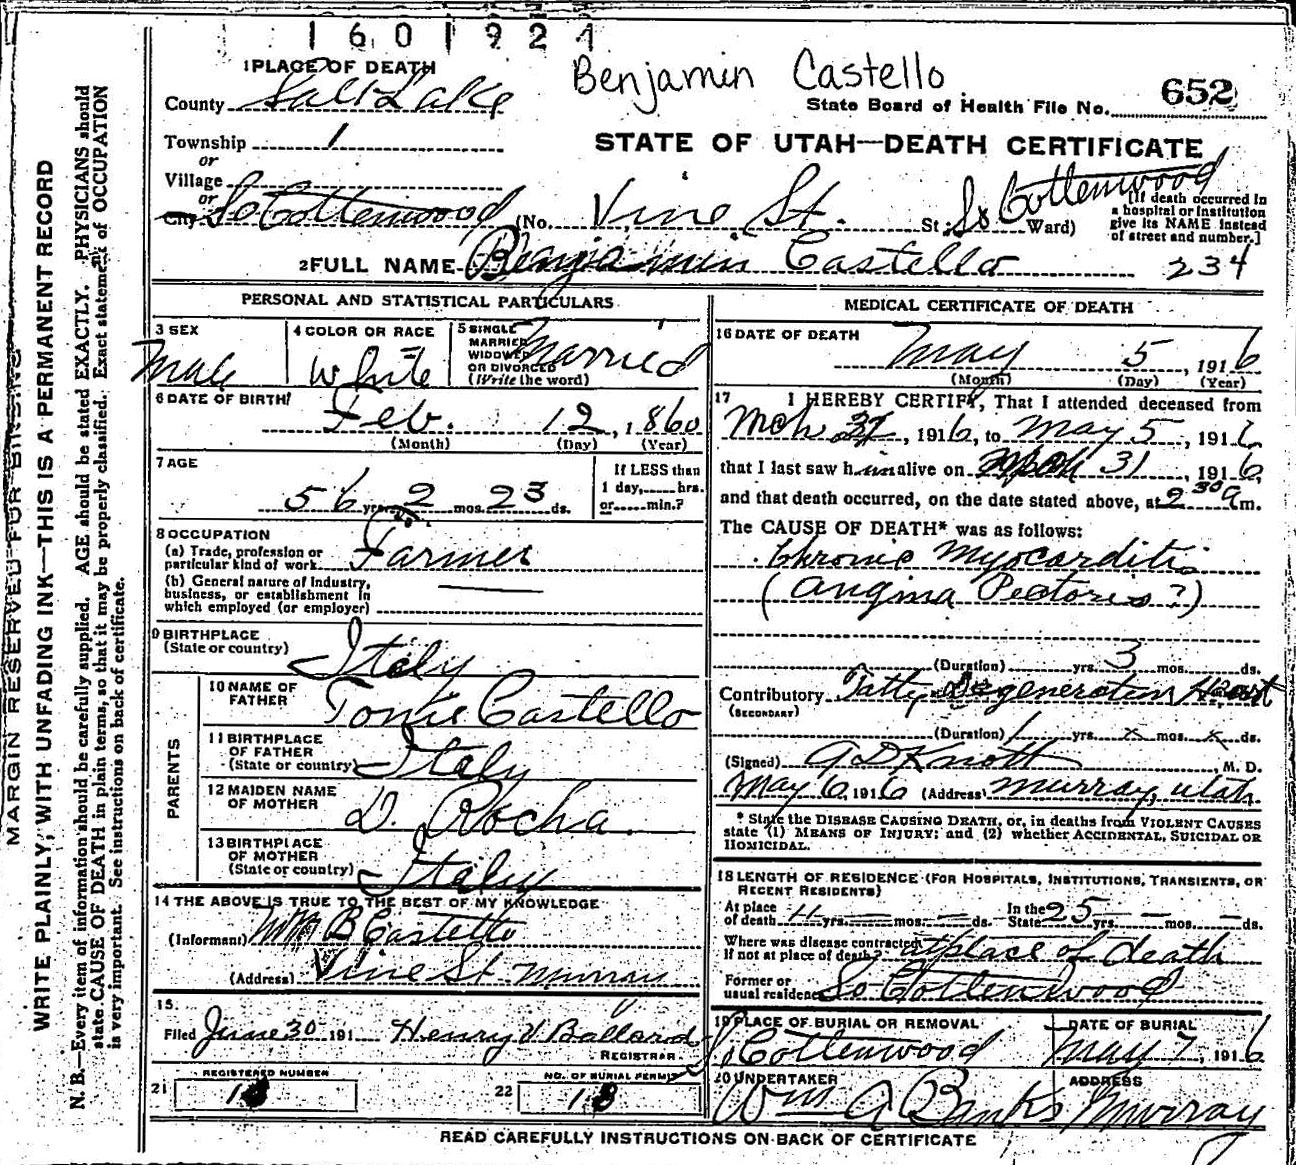 1601924
1 PLACE OF DEATH
Benjamin Castello
County Salt Lake
State Board of Health File No. 652
Township 1
STATE OF UTAH—DEATH CERTIFICATE
or
Village
or
City So Cottonwood (No. Vine St. St; So Cottonwood Ward)
[If death occurred in
a hospital or institution
give its NAME instead
of street and number.]
2 FULL NAME Benjamin Castello 234
PERSONAL AND STATISTICAL PARTICULARS
3 SEX
Male
4 COLOR OR RACE
White
5 SINGLE
MARRIED
WIDOWED
OR DIVORCED
(Write the word)
Married
6 DATE OF BIRTH
Feb. 12, 1860
(Month) (Day) (Year)
7 AGE
56 yrs. 2 mos. 23 ds.
If LESS than
1 day,......hrs.
or......min.?
8 OCCUPATION
(a) Trade, profession or
particular kind of work
Farmer
(b) General nature of Industry,
business, or establishment in
which employed (or employer)
9 BIRTHPLACE
(State or country)
Italy
PARENTS
10 NAME OF
FATHER
Tonie Castello
11 BIRTHPLACE
OF FATHER
(State or country)
Italy
12 MAIDEN NAME
OF MOTHER
D. Rocha.
13 BIRTHPLACE
OF MOTHER
(State or country)
Italy
14 THE ABOVE IS TRUE TO THE BEST OF MY KNOWLEDGE
(Informant) B Castello
(Address) Vine St Murray
15
Filed June 30 191 Henry V Ballard
REGISTRAR
21 REGISTERED NUMBER
22 NO. OF BURIAL PERMIT
MEDICAL CERTIFICATE OF DEATH
16 DATE OF DEATH
May 5, 1916
(Month) (Day) (Year)
17 I HEREBY CERTIFY, That I attended deceased from
Mch, 1916, to May 5, 1916,
that I last saw him alive on 31, 1916,
and that death occurred, on the date stated above, at 2 30 a m.
The CAUSE OF DEATH* was as follows:
Chronic Myocarditis
(Angina Pectoris?)
(Duration) yrs. 3 mos. ds.
Contributory Fatty Degeneration Heart
(SECONDARY)
(Duration) 1 yrs. x mos. x ds.
(Signed) A D Knott, M. D.
May 6, 1916 (Address) Murray, Utah.
* State the DISEASE CAUSING DEATH, or, in deaths from VIOLENT CAUSES
state (1) MEANS OF INJURY; and (2) whether ACCIDENTAL, SUICIDAL OR
HOMICIDAL.
18 LENGTH OF RESIDENCE (FOR HOSPITALS, INSTITUTIONS, TRANSIENTS, OR
RECENT RESIDENTS)
At place
of death 11 yrs. — mos. — ds. In the
State 25 yrs. — mos. — ds.
Where was disease contracted,
if not at place of death? at place of death
Former or
usual residence So Cottonwood
19 PLACE OF BURIAL OR REMOVAL
So Cottonwood
DATE OF BURIAL
May 7, 1916
20 UNDERTAKER
Wm A Banks
ADDRESS
Murray
READ CAREFULLY INSTRUCTIONS ON BACK OF CERTIFICATE
MARGIN RESERVED FOR BINDING
WRITE PLAINLY, WITH UNFADING INK—THIS IS A PERMANENT RECORD
N. B.—Every item of information should be carefully supplied. AGE should be stated EXACTLY. PHYSICIANS should
state CAUSE OF DEATH in plain terms, so that it may be properly classified. Exact statement of OCCUPATION
is very important. See instructions on back of certificate.